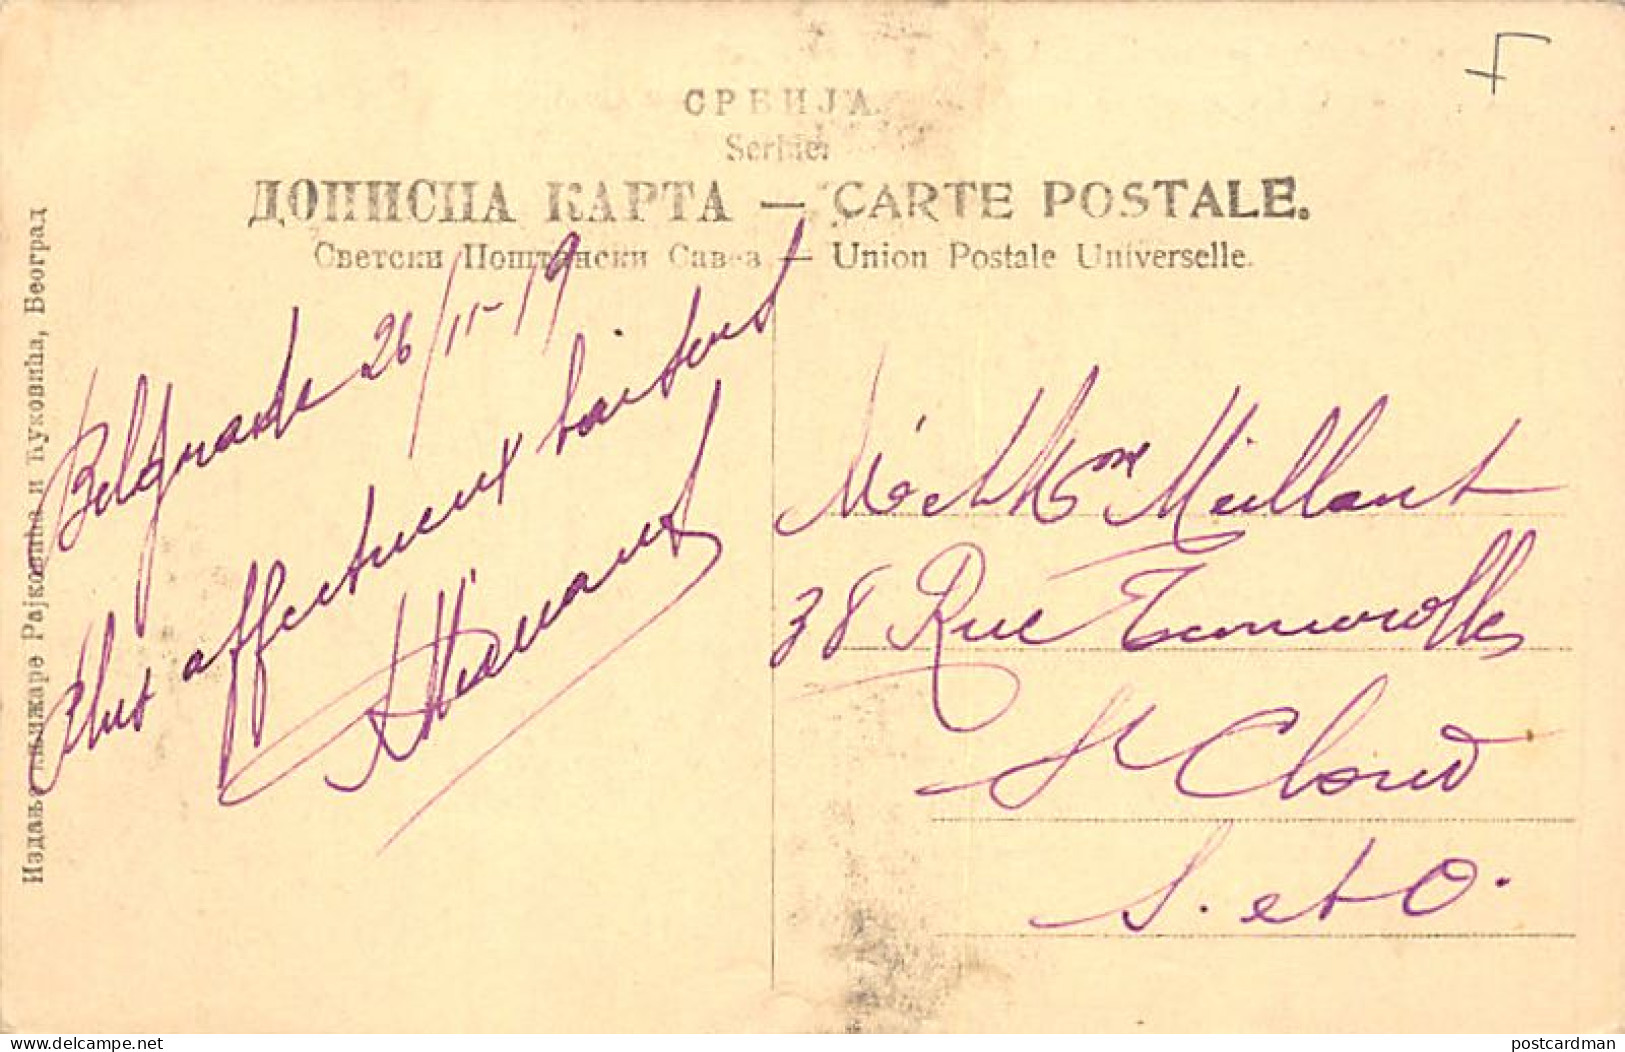 СРБИЈА.
Serbie.
ДОПИСНА КАРТА — CARTE POSTALE.
Светски Поштански Савез — Union Postale Universelle.
Издање књижаре Рајковића и Ћуковића, Београд
Belgrade 26/11-19
Plus affectueux baisers
Mr et Mme Meillant
38 Rue
St Cloud
S. et O.
F
postcardman
delcampe.net